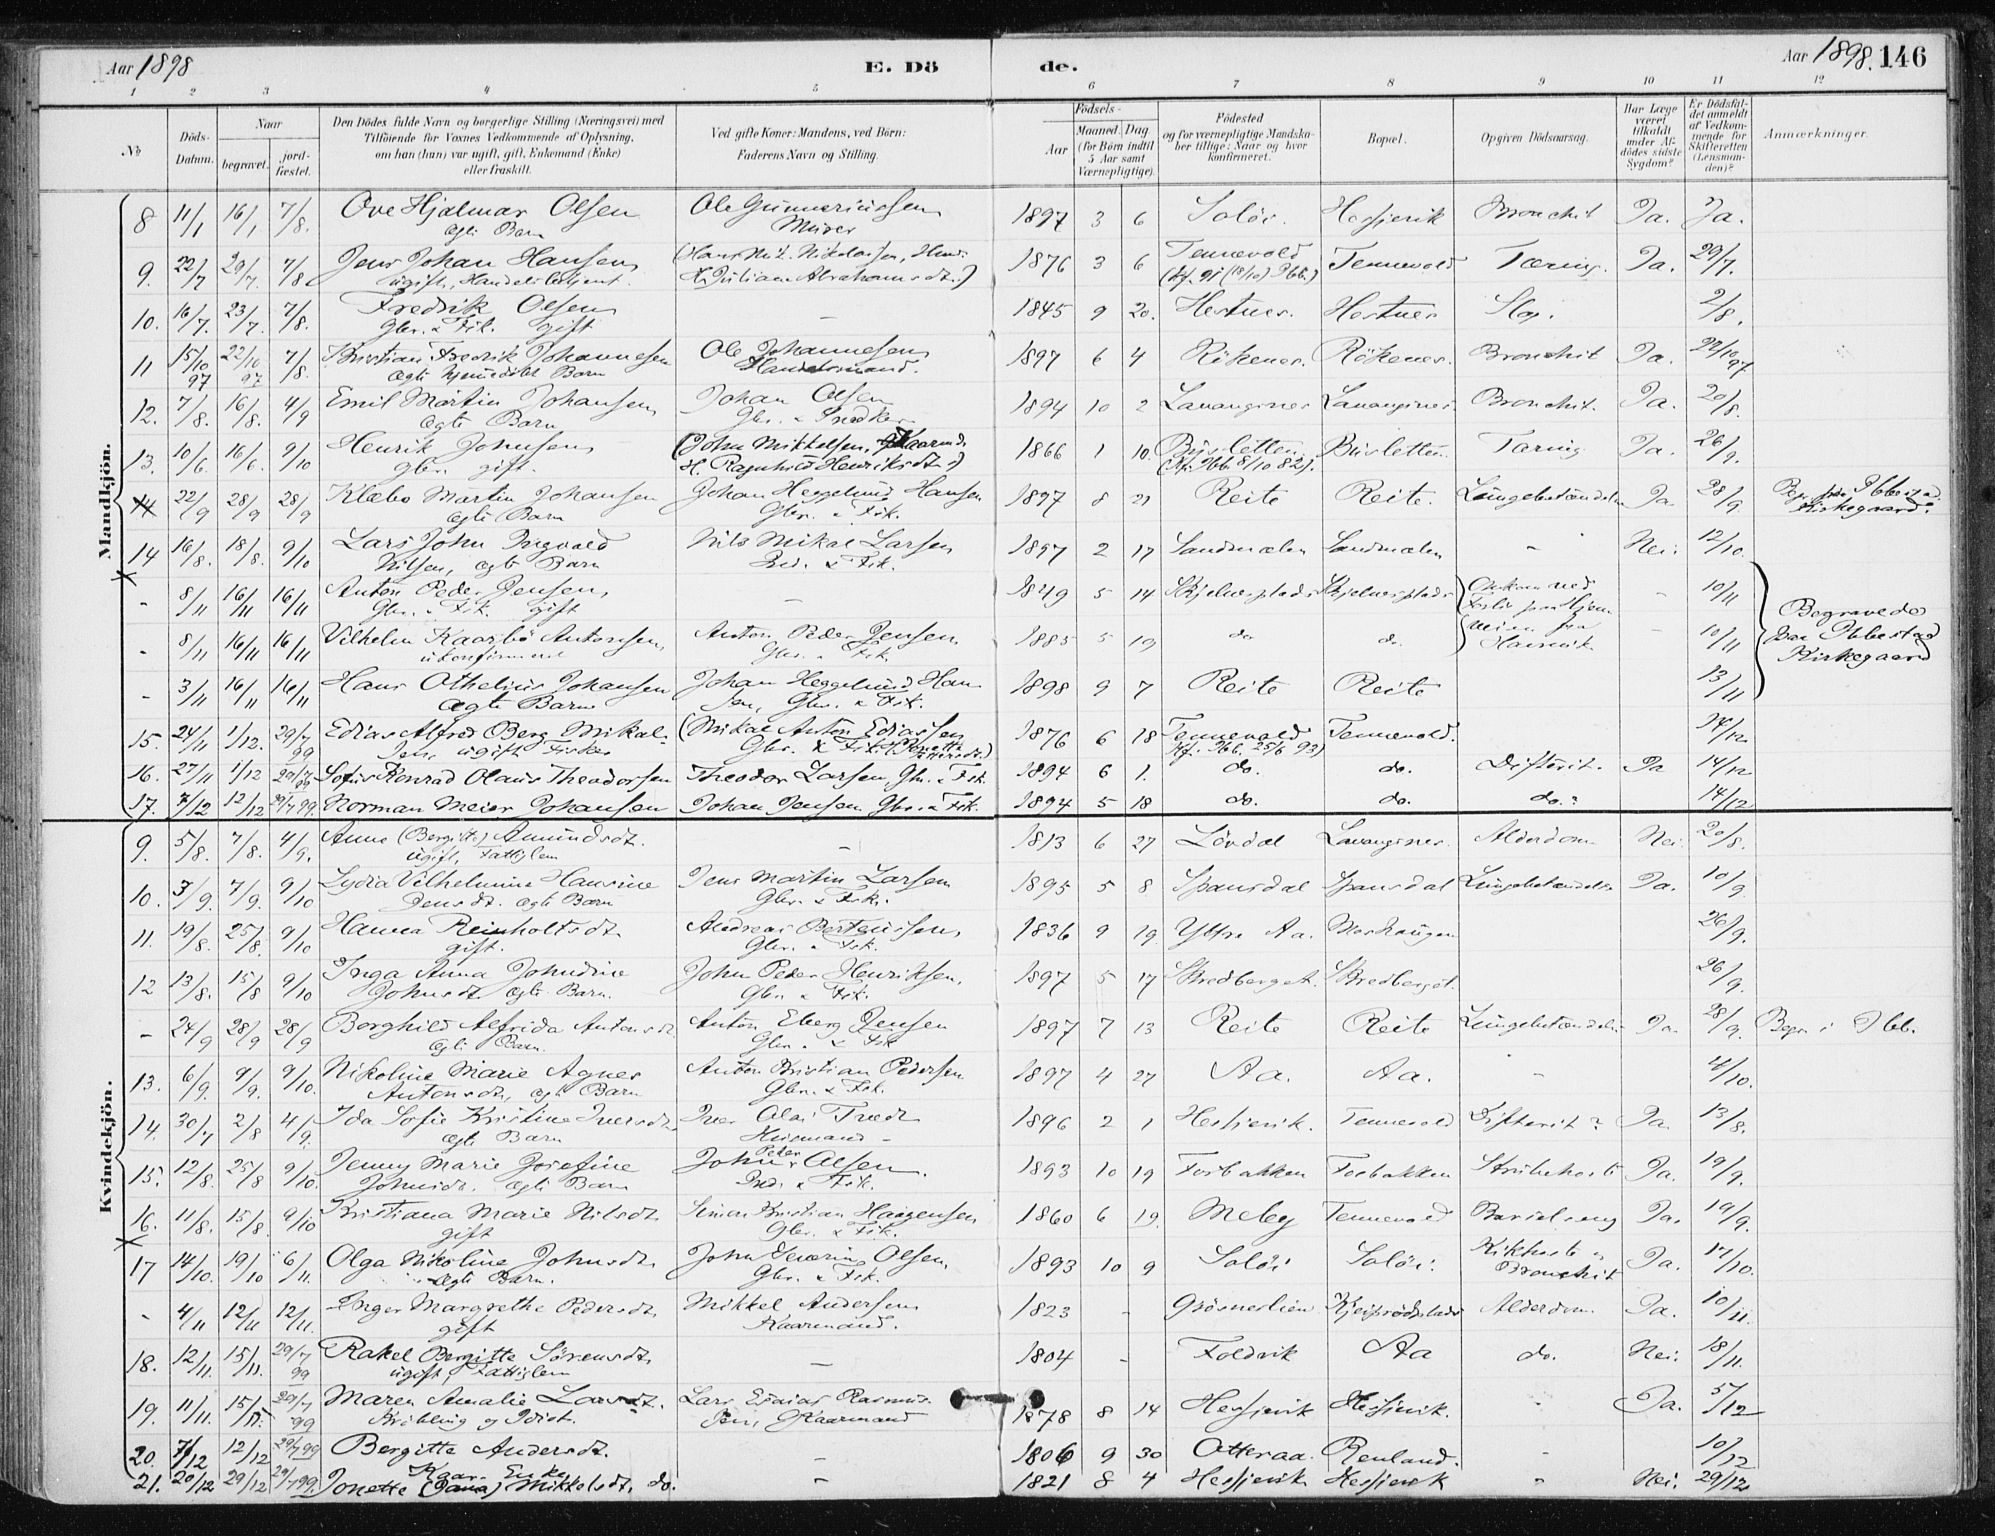 Aar 1898
E. Dö
de.
Aar 1898. 146
1 2 3 4 5 6 7 8 9 10 11 12
No
Döds-Datum.
Naar
begravet.
jord-fæstet.
Den Dödes fulde Navn og borgerlige Stilling (Næringsvei) med
Tilföiende for Voxnes Vedkommende af Oplysning,
om han (hun) var ugift, gift, Enkemand (Enke)
eller fraskilt.
Ved gifte Koner: Mandens, ved Börn:
Faderens Navn og Stilling.
Födsels-
Aar
Maaned. Dag.
(for Börn indtil
5 Aar samt
Værnepligtige).
Födested
og for værnepligtige Mandska-
ber tillige: Naar og hvor
konfirmeret.
Bopæl.
Opgiven Dödsaarsag.
Har Læge
været
tilkaldt
under Af-
dödes sidste
Sygdom?
Er Dödsfal-
det anmeldt
af Vedkom-
mende for
Skifteretten
(Lensman-
den)?
Anmærkninger.
Mandkjön.
8 11/1 16/1 7/8. Ove Hjalmar Olsen Ole Gunneriussen 1897 3 6 Solöi. Hessjevik Bronchit Ja. Ja.
ægte Barn Murer
9. 22/7 29/7. 7/8 Jens Johan Hansen 1876 3 6 Tennevold Tennevold Tæring. Ja. 29/7.
ugift, Handelsbetjent. H. Juliana Abrahamsdt.)
10. 16/7. 23/7. 7/8. Fredrik Olsen - 1845 9 20. Hestnes. Hestnes Slag. 2/8.
Gbr. & Fsk. gift
11 15/10 97 22/10 97 7/8. Kristian Fredrik Johannesen Ole Johannesen 1897 6 4 Rökenes. Rökenes. Bronchit Ja. 22/10 97
ægte hjemedöbt Barn Handelsmand.
12. 7/8. 16/8. 4/9 Emil Martin Johansen Johan Olsen 1894 10 2 Lavangsnes Lavangsnes. Bronchit. Ja. 20/8.
ægte Barn Gbr. & Snedker
13. 10/6. 16/6. 9/10 Henrik Johnsen (John Mikkelsen, Kaarmd. 1866 1 10. Busletten. Busletten. Tæring Ja. 26/9.
Gbr. gift. H. Ragnhild Henriksdt.) (Kf. Ibb. 8/10 82).
14 22/9 28/9 28/9 Klæbo Martin Johansen Johan Heggelund Hansen 1897 8 21 Reite Reite. Lungebetændelse Ja. 28/9. Begr. paa Ibbestad
ægte Barn Gbr. & Fsk. Kirkegaard.
14 16/8. 18/8. 9/10 Lars John Ingvald Nils Mikal Larsen 1897 2 17 Sandmælen Sandmælen - Nei. 12/10.
Nilsen, ægte Barn Ind. & Fsk.
- 8/11 16/11 16/11 Anton Peder Jensen - 1849 5 14 Omkom ved - 10/11
Gbr. & Fsk. gift Forlis paa Hjem
- 8/11 16/11 16/11 Vilhelm Kaarbö Antonsen Anton Peder Jensen 1885 5 19 do do. veien fra - 10/11
ukonfirmeret Gbr. & Fsk. Havnvik
Begravede
paa Ibbestad
Kirkegaard
- 3/11 16/11 16/11 Hans Othelius Johansen Johan Heggelund Han- 1898 9 7 Reite Reite 13/11
ægte Barn sen, Gbr. & Fsk.
15. 24/11 1/12. 29/7 99 Edias Alfred Berg Mikal- (Mikal Anton Ediassen 1876 6 18 Tennevold Tennevold. 14/12
sen, ugift Fisker Gbr. & Fsk. Kf. Ibb. 25/6 93)
16. 27/11 1/12 29/7 99 Sofus Konrad Olaus Theodorsen Theodor Larsen, Gbr. & Fsk. 1894 6 1. do. do. Difterit. Ja 14/12
17. 7/12 12/12 29/7 99. Norman Meier Johansen Johan Jensen Gbr. & Fsk. 1894 5 18 do. do. do.? 14/12
Kvindekjön.
9. 5/8. 7/8. 4/9. Anne (Bergitte) Amundsdt. - 1813 6 27 Lövdal Lavangsnes. Alderdom Nei. 20/8.
ugift, Fattiglem
10. 3/9. 7/9. 9/10 Lydia Vilhelmine Hansine Jens Martin Larsen 1895 5 8 Spansdal Spansdal Lungebetændelse Ja. 10/9.
Jensdt. ægte Barn Gbr. & Fsk.
11. 19/8. 25/8. 9/10 Hanna Reinholtsdt. Andreas Berteussen 1836 9 19. Yttre Aa. Moshaugen 26/9.
gift. Gbr. & Fsk.
12 13/8. 15/8 9/10 Inga Anna Johndine John Peder Henriksen. 1897 5 17 Bredberget. Bredberget. 26/9.
Johnsdt. ægte Barn. Gbr. & Fsk.
- 24/9 28/9 28/9 Borghild Alfrida Antonsdt Anton Eberg Jensen 1897 7 13 Reite Reite Lungebetændelse Ja. 28/9. Begr. i Ibb.
ægte Barn. Gbr. & Fsk
13. 6/9. 9/9. 9/10. Nikoline Marie Agnes Anton Kristian Pedersen 1897 4 27 Aa. Aa. - 4/10.
Antonsdt, ægte Barn Gbr. & Fsk.
14. 30/7 2/8 4/9. Ida Sofie Kristine Iversdt. Iver Olai Tredt 1896 2 1 Hessjevik. Tennevold Difterit? Ja. 13/8.
ægte Barn Husmand -
15. 12/8. 25/8 9/10. Jenny Marie Josefine John Peder Olsen. 1893 10 19 Forbakken Forbakken Strubehoste Ja. 19/9.
Johnsdt. ægte Barn Ind. & Fsk.
16. 11/8. 15/8. 9/10 Kristiana Marie Nilsdt. Simon Kristian Haagensen 1860 6 19. Meby Tennevold Barselseng Ja. 19/9.
gift Gbr. & Fsk.
17 14/10. 19/10 6/11. Olga Nikoline Johnsdt. John Severin Olsen 1893 10 9 Solöi Solöi. Kikhoste & Ja. 17/10.
ægte Barn. Gbr. & Fsk. Bronchit
- 4/11 12/11 12/11. Inger Margrethe Pedersdt. Mikkel Andersen 1823 - Grösneslien Alderdom. Ja. 10/11.
gift Kaarmand.
18. 12/11. 15/11. 29/7 99 Rakel Bergitte Sörensdt. - 1804 - Foldvik Aa do. Nei. 18/11.
ugift, Fattiglem
19. 11/11. 15/11. 29/7 99 Maren Amalie Larsdt. Lars Esaias Rasmus- 1878 8 14 Hessjevik Hessjevik. Ja. 5/12
Kröbling og Idiot. sen, Kaarmand
20. 7/12 12/12 29/7 99 Bergitte Andersdt. - 1806 9 30 Otteraa. Renland. - 10/12
Kaar. Enke
21. 20/12 29/12 29/7 99. Jonette (Jana) Mikkelsdt. do. - 1821 8 4 Hessjevik Hessjevik " Nei. 29/12